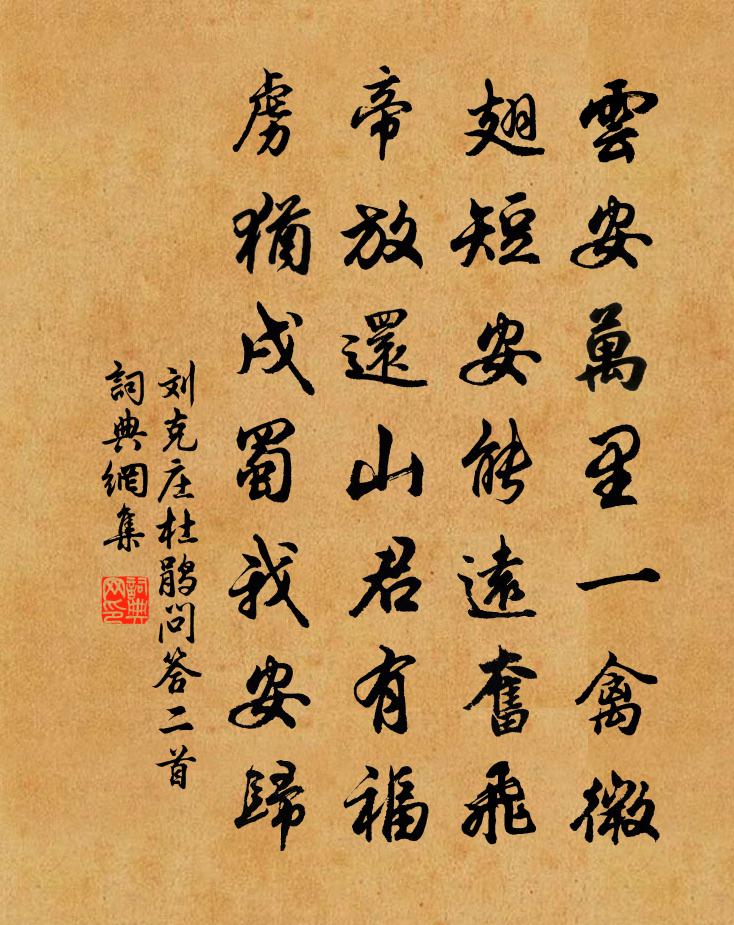 雲安萬里一禽微
翅短安能遠奮飛
帝放還山君有福
虜猶戍蜀我安歸
刘克庄杜鹃问答二首
詞典網集
詞典
网印